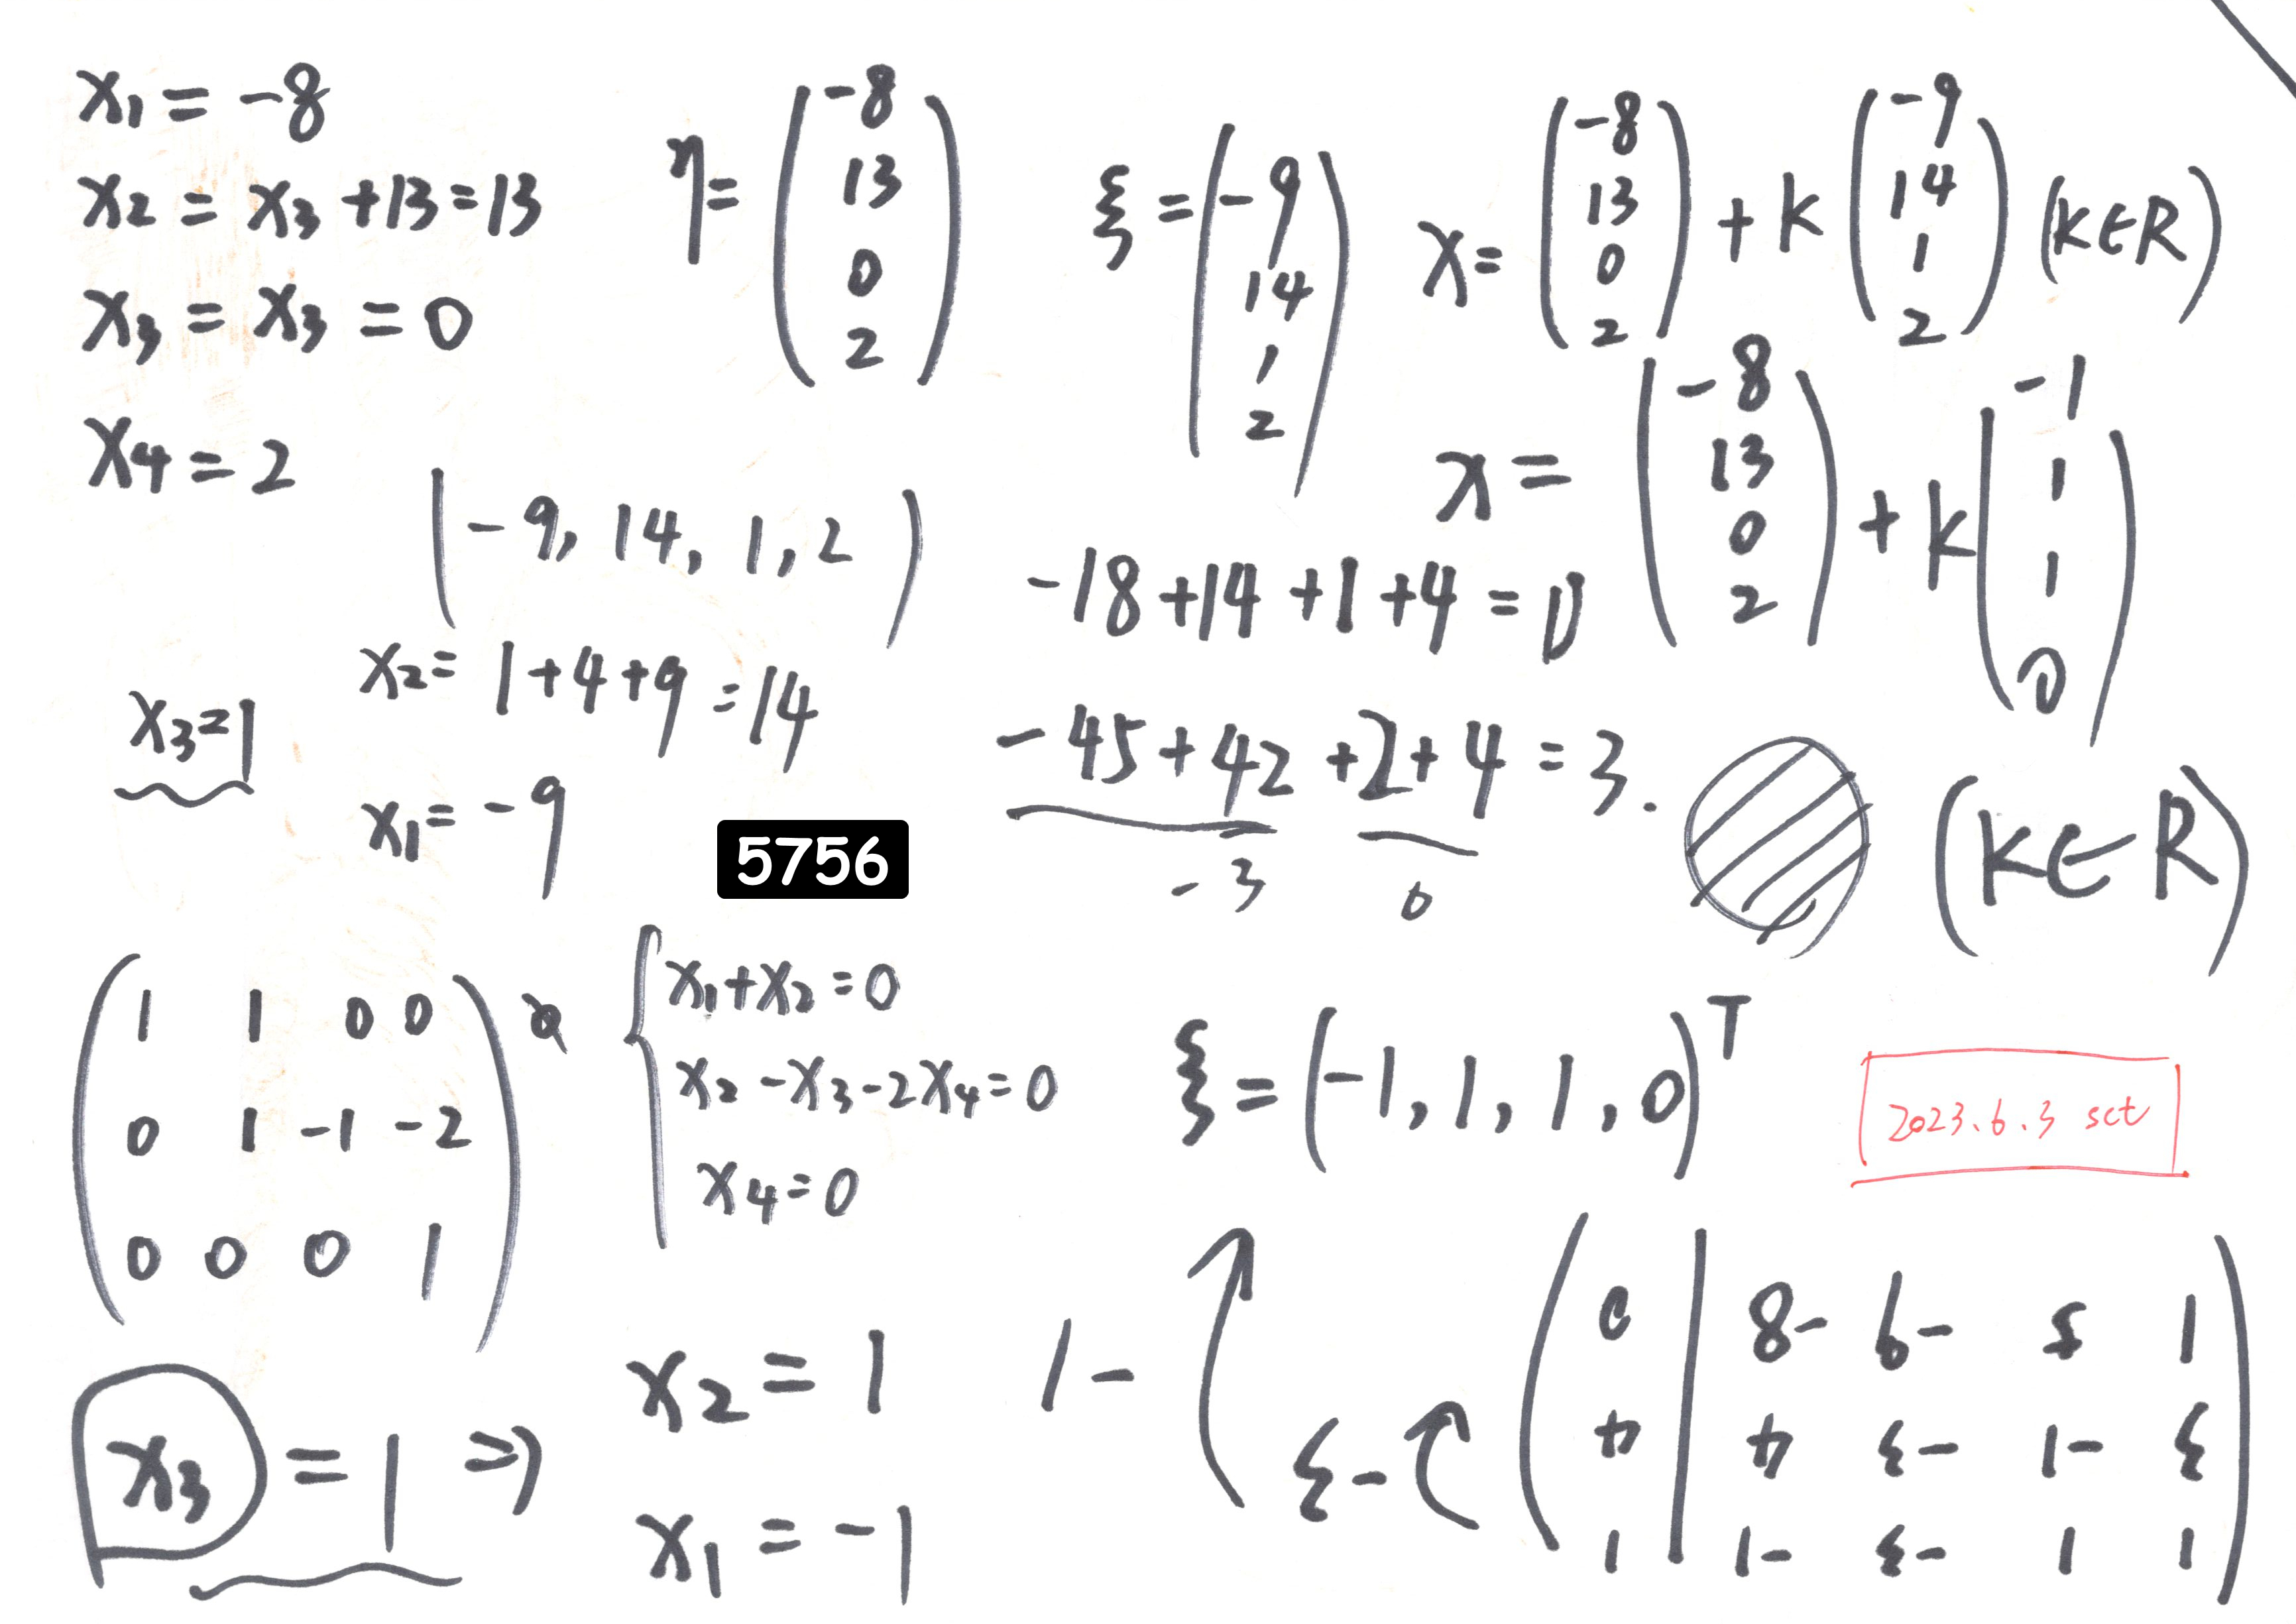 x₁ = -8
x₂ = x₃ + 13 = 13
x₃ = x₃ = 0
x₄ = 2
η = (-8 13 0 2)
ξ = (-9 14 1 2)
x = (-8 13 0 2) + k (-9 14 1 2) (k∈R)
x = (-8 13 0 2) + k (-1 1 1 0)
(k∈R)
(-9, 14, 1, 2)
x₃ = 1
x₂ = 1+4+9 = 14
x₁ = -9
-18 + 14 + 1 + 4 = 0
-45 + 42 + 2 + 4 = 3.
-3 6
5756
(1 1 0 0
0 1 -1 -2
0 0 0 1)
{x₁+x₂=0
x₂-x₃-2x₄=0
x₄=0
ξ = (-1, 1, 1, 0)ᵀ
2023.6.3 sct
x₃ = 1 ⇒
x₂ = 1
x₁ = -1
(1 1 -3 -1 | 1
3 -1 -3 4 | 4
1 5 -9 -8 | 0)
-3
-1